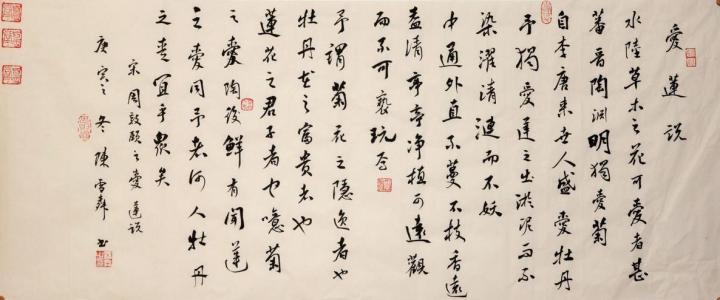 愛蓮説
水陸草木之花可愛者甚
蕃晉陶淵明獨愛菊
自李唐來世人盛愛牡丹
予獨愛蓮之出淤泥而不
染濯清漣而不妖
中通外直不蔓不枝香遠
益清亭亭净植可遠觀
而不可褻玩焉
予謂菊花之隱逸者也
牡丹花之富貴者也
蓮花之君子者也噫菊
之愛陶後鮮有聞蓮
之愛同予者何人牡丹
之愛宜乎眾矣
宋周敦頤之愛蓮説
庚寅之冬陳雪書